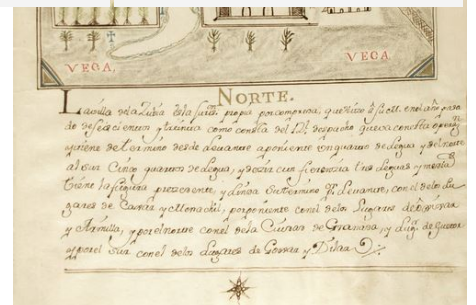 VEGA, VEGA.
NORTE.
La villa de la Zubia es la suia propia por compra que hizo à su Mag. en el año pasa
do de setecientos y treinta como consta del R.l despacho que va con esta operaz.n
y tiene de termino desde levante a poniente un quarto de legua y del norte
al sur Cinco quartos de legua, y de circunferencia tres leguas y media
tiene la figura presente, y linda su termino p.r levante, con el de los Lu
gares de Caxar y Monachil, por poniente con el de los Lugares de Ogixares
y Armilla, y por el norte con el de la Ciudad de Granada, y Lug.r de Huetor
y por el Sur con el de los Lugares de Goxar y Dilar